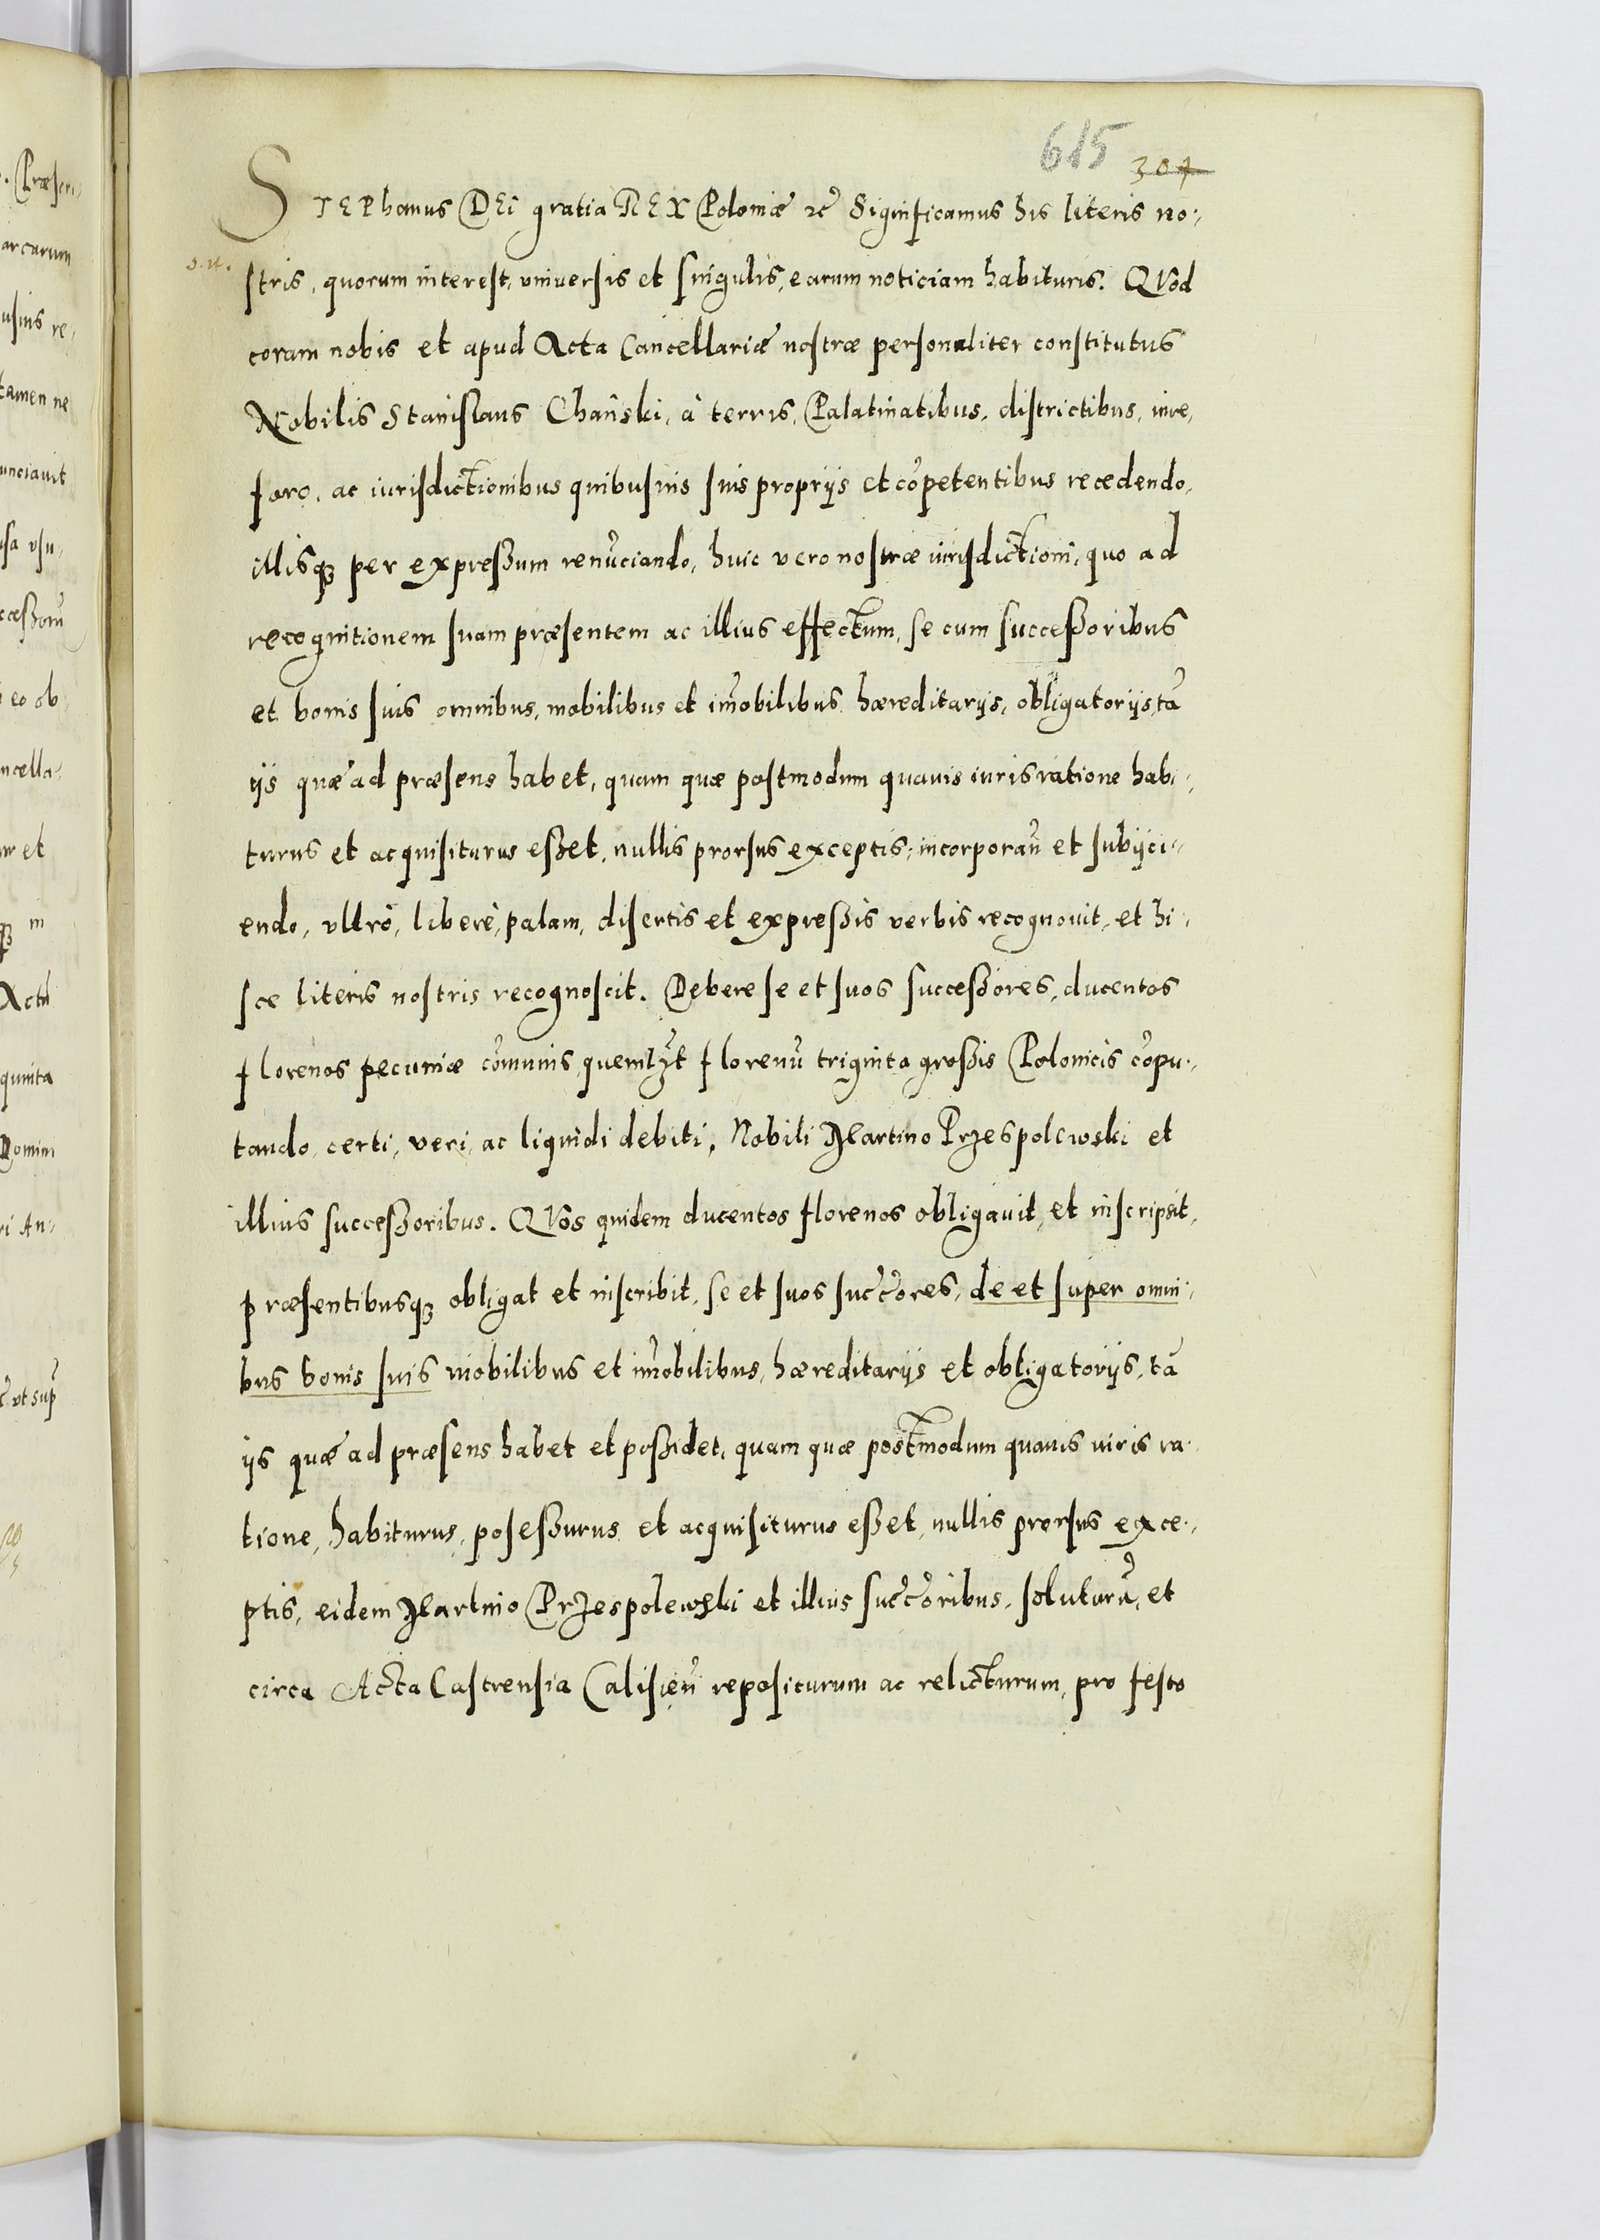 615 307
STEPhanus DEi gratia REX Poloniæ ꝛc̃ Significamus his literis no-
stris, quorum interest, vniuersis et singulis, earum noticiam habituris. QVod
coram nobis et apud Acta Cancellariæ nostræ personaliter constitutus
Nobilis Stanislaus Chański, à terris, Palatinatibus, districtibus, iure,
foro, ac iurisdictionibus quibusuis suis proprijs et cõpetentibus recedendo,
illisqꝫ per expressum renũciando, huic vero nostræ iurisdictioni, quo ad
recognitionem suam præsentem ac illius effectum, se cum successoribus
et bonis suis omnibus, mobilibus et im̃obilibus hæreditarijs, obligatorijs, tã
ijs quæ ad præsens habet, quam quæ postmodum quauis iuris ratione habi-
turus et acquisiturus esset, nullis prorsus exceptis, incorporañ et subijci-
endo, vltrò, liberè, palam, disertis et expressis verbis recognouit, et hi-
sce literis nostris recognoscit. Debere se et suos successores, ducentos
florenos pecuniæ cõmunis, quemlꝫt florenũ triginta grossis Polonicis cõpu-
tando, certi, veri, ac liquidi debiti, Nobili Martino Przespolewski et
illius successoribus. QVos quidem ducentos florenos obligauit, et inscripsit,
præsentibusqꝫ obligat et inscribit, se et suos succ̃c̃ores, de et super omni-
bus bonis suis mobilibus et im̃obilibus, hæreditarijs et obligatorijs, tã
ijs quæ ad præsens habet et possidet, quam quæ postmodum quauis iuris ra-
tione, habiturus, posessurus et acquisiturus esset, nullis prorsus exce-
ptis, eidem Martino Przespolewski et illius succ̃c̃oribus, soluturũ, et
circa Acta Castrensia Calisień repositurum ac relicturum, pro festo